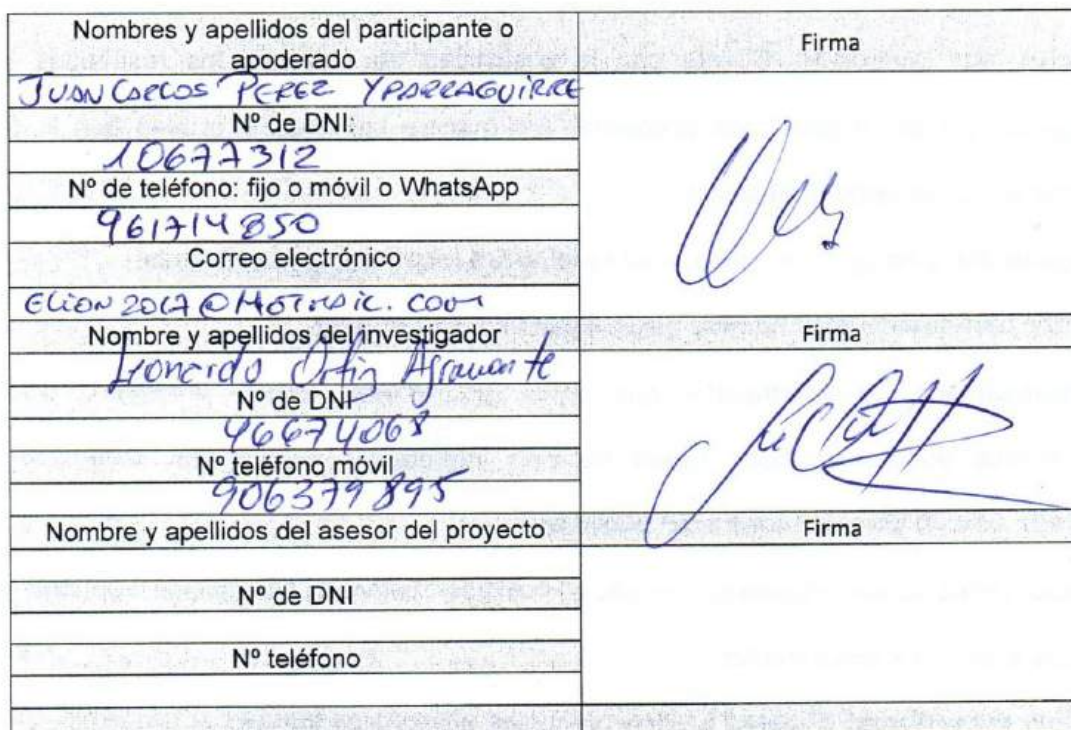 Nombres y apellidos del participante o
apoderado
Firma
JUAN CARLOS PEREZ YPARRAGUIRRE
Nº de DNI:
10677312
Nº de teléfono: fijo o móvil o WhatsApp
961714850
Correo electrónico
@HOTMAIL.COM
Nombre y apellidos del investigador
Firma
Leonardo
Nº de DNI
46674068
Nº teléfono móvil
906379895
Nombre y apellidos del asesor del proyecto
Firma
Nº de DNI
Nº teléfono